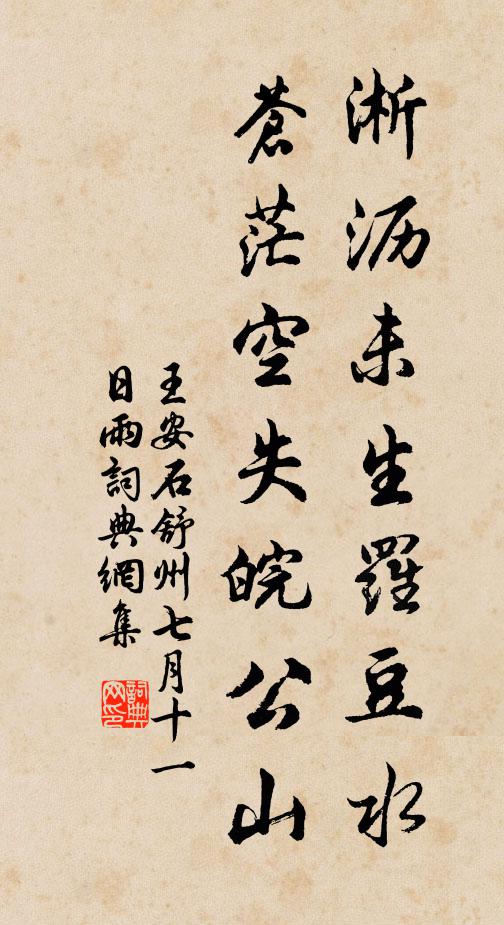 淅沥未生羅豆水
蒼茫空失皖公山
王安石舒州七月十一
日雨詞典網集
詞典
网印